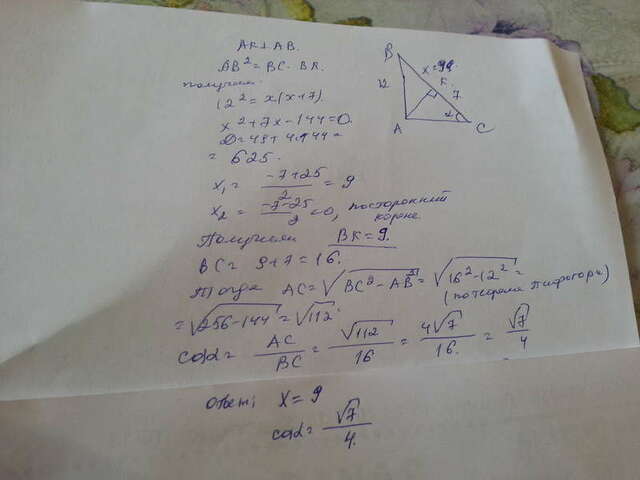 AK⊥AB.
AB² = BC · BK.
получим
12² = x(x+7).
x² + 7x - 144 = 0.
D = 49 + 4·144 =
= 625.
x₁ = (-7+25)/2 = 9
x₂ = (-7-25)/2 < 0, посторонний
корень
Получили BK = 9.
BC = 9 + 7 = 16.
Тогда AC = √(BC² - AB²) = √(16² - 12²) =
(по теореме Пифагора)
= √(256 - 144) = √112
cosα = AC/BC = √112/16 = 4√7/16 = √7/4
ответ: x = 9
cosα = √7/4.
B
x = 9
K
12
7
A
α
C